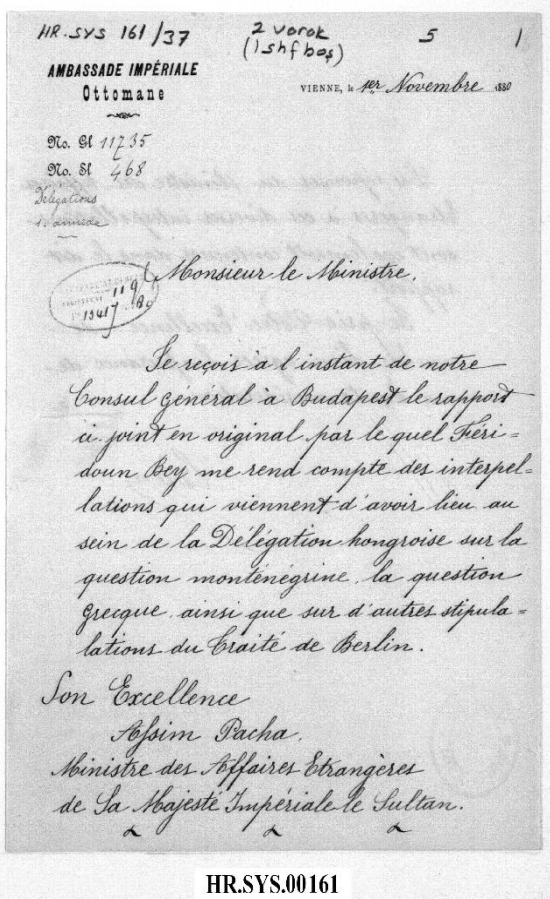 HR.SYS 161/37
2 varak
(1 shf boş)
5
1
AMBASSADE IMPÉRIALE
Ottomane
VIENNE, le 1er Novembre 1880
No. Gl 11735
No. Sl 468
Délégations
1 annexe
119
13417
Monsieur le Ministre,
Je reçois à l'instant de notre
Consul général à Budapest le rapport
ci joint en original par le quel Féri=
doun Bey me rend compte des interpel=
lations qui viennent d'avoir lieu au
sein de la Délégation hongroise sur la
question monténégrine, la question
grecque ainsi que sur d'autres stipula=
lations du Traité de Berlin.
Son Excellence
Assim Pacha,
Ministre des Affaires Etrangères
de Sa Majesté Impériale le Sultan.
HR.SYS.00161